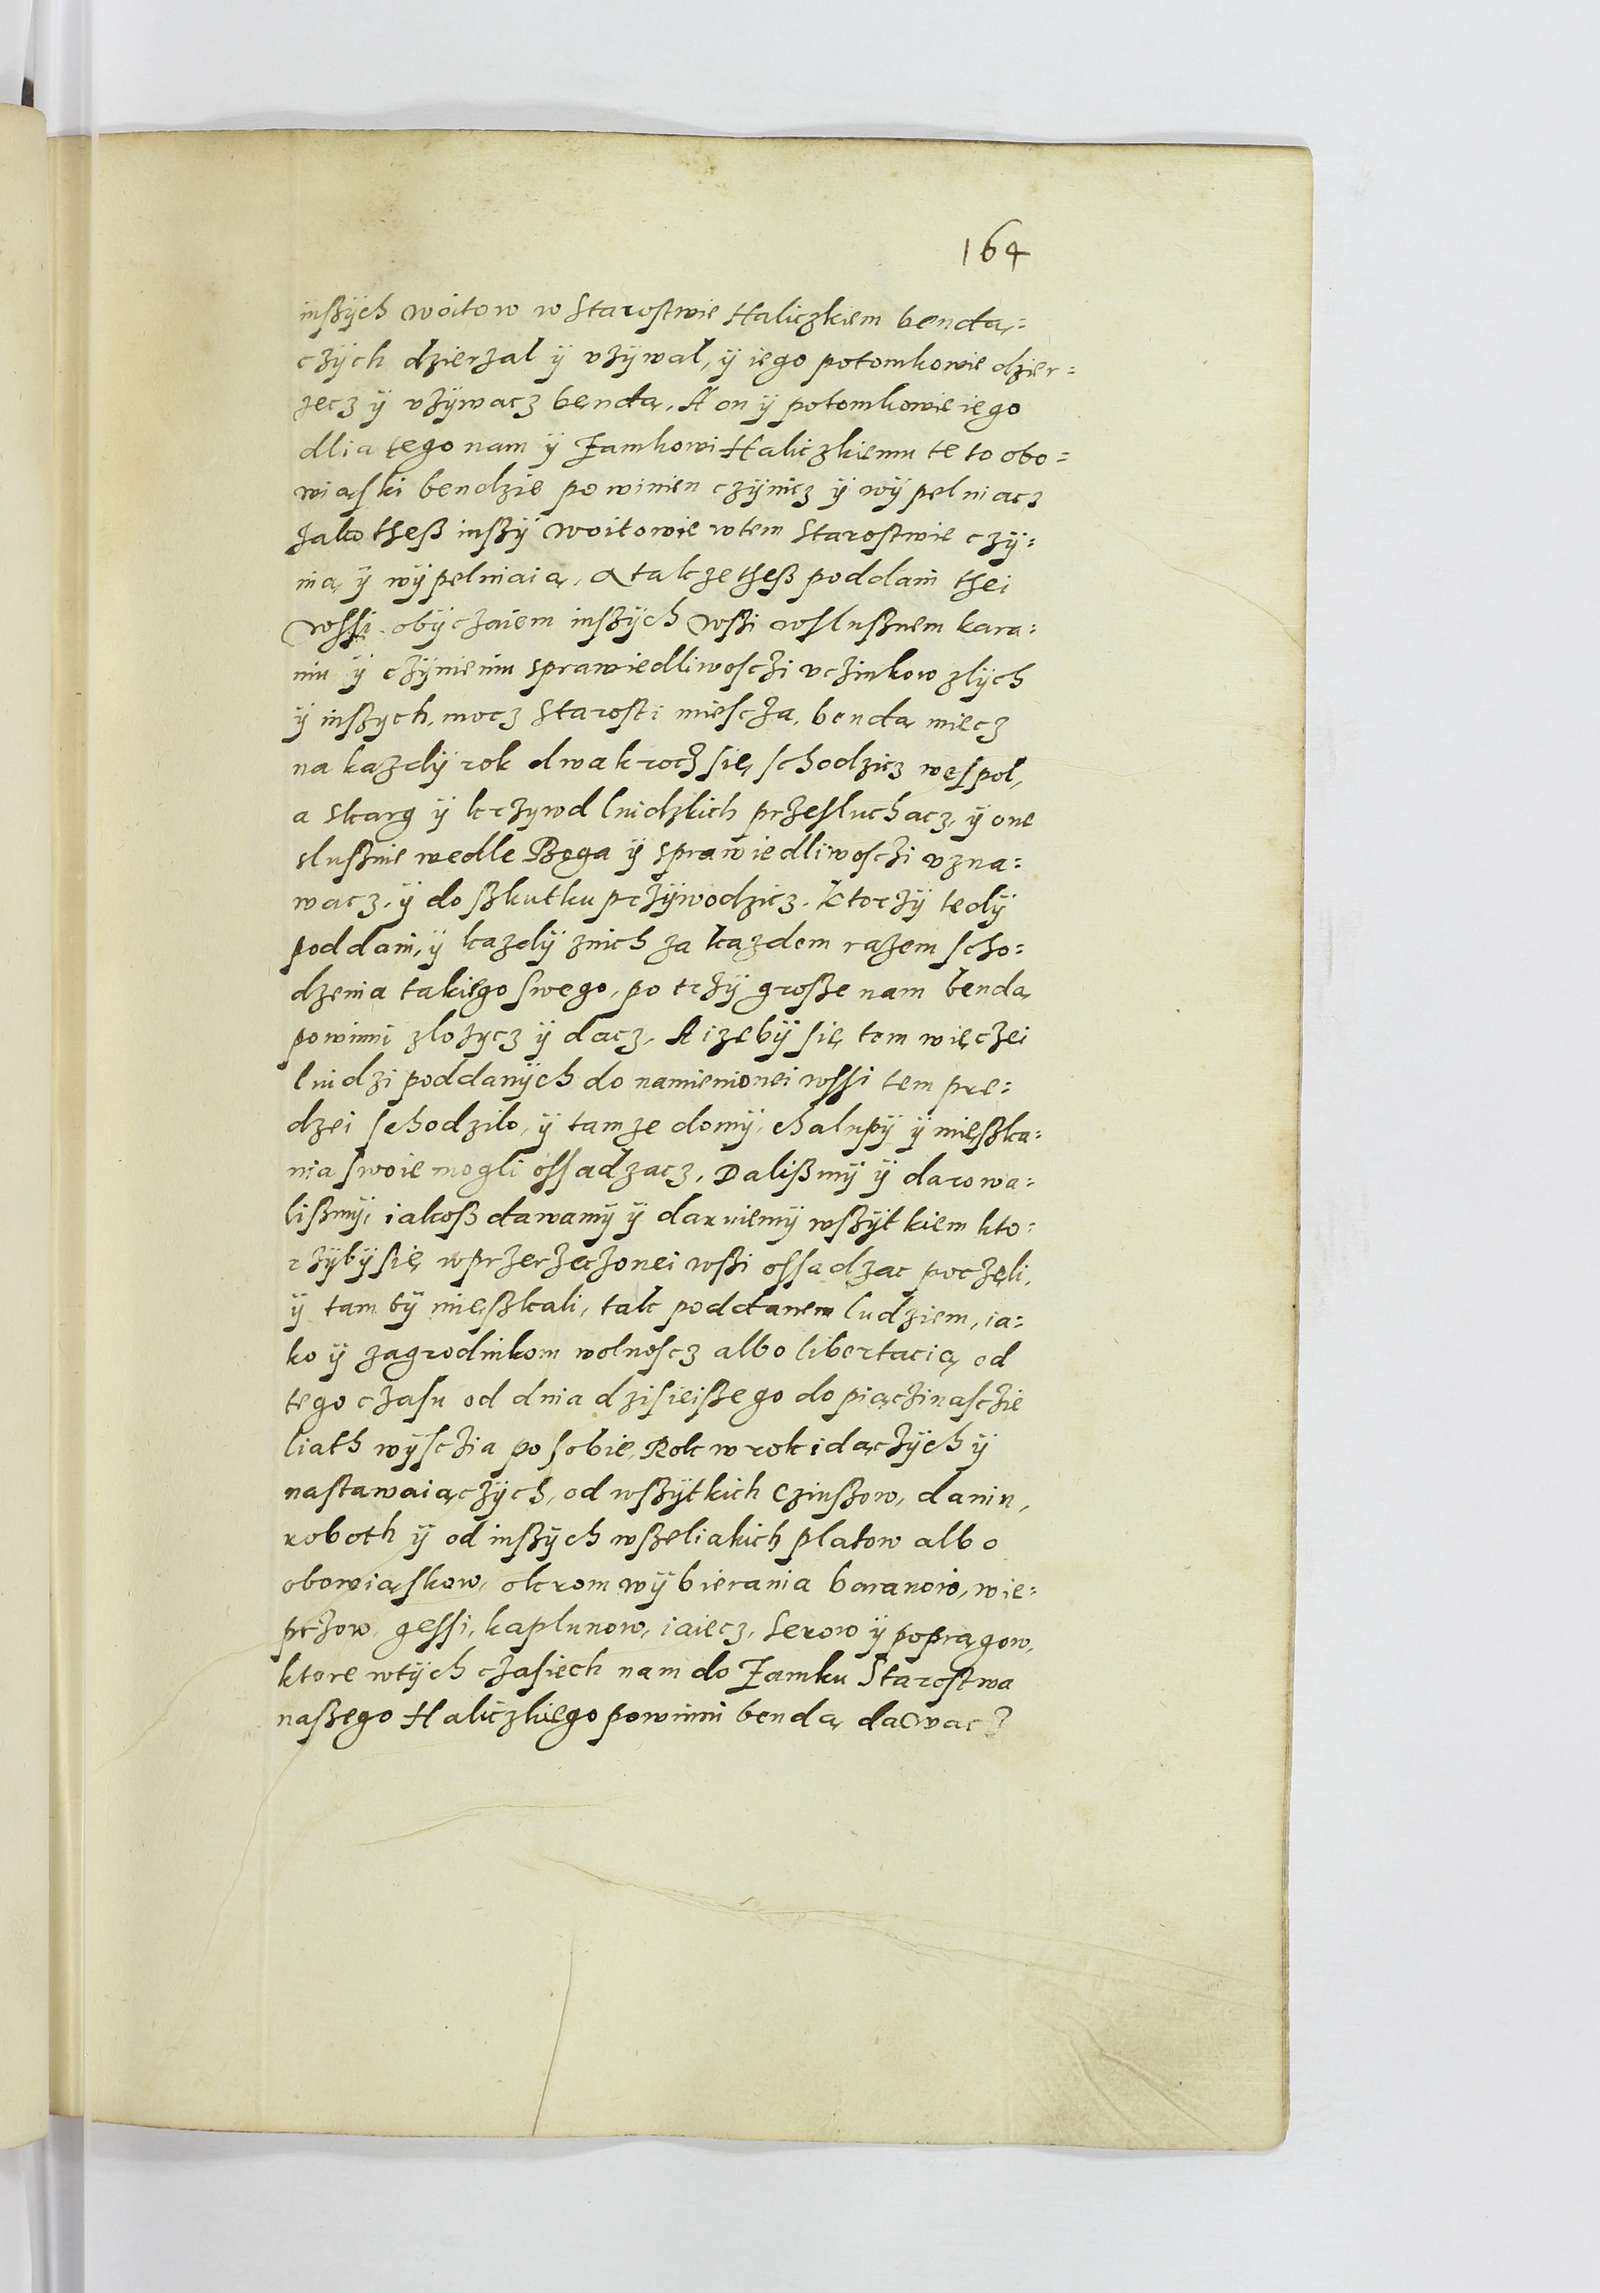 164
inßÿch woitow w Starostwie Haliczkiem bendą=
czÿch dzierzal ÿ vzÿwal, ÿ iego potomkowie dzier=
zecz ÿ vzÿwacz bęndą. A on ÿ potomkowie iego
dlia tego nam ÿ Zamkowi Haliczkiemu te to obo=
wiąski bendzie powinien czÿnicz ÿ wÿpelniacz
Jako theß inßÿ woitowie wtem Starostwie czÿ=
nią ÿ wÿpelniaią. A takze theß poddani thei
wssi obÿczaiem inßÿch wßi wslusznem kara=
niu ÿ czÿnieniu sprawiedliwosczi vczinkow zlÿch
ÿ inßych, mocz Starosti miescza, bendą miecz
na kazdÿ rok dwakrocz się schodzicz wespol,
a skarg ÿ krzywd luidzkich przesluchacz, ÿ one
slusznie wedle Boga ÿ sprawiedliwosczi vzna=
wacz, ÿ do szkutku przÿwodzicz. Ktorzÿ tedÿ
poddani, ÿ kazdÿ znich za kazdem razem scho=
dzenia takiego swego, po trzÿ grosze nam bendą
powinni zlozycz ÿ dacz. A izebÿ się tem więczei
luidzi poddanÿch do namienionei wssi tem prę=
dzei schodzilo, ÿ tamze domÿ, chalupÿ ÿ mieszka=
nia swoie mogli ossadzacz, Dalißmÿ ÿ darowa=
lißmÿ, iakoß dawamÿ ÿ daruiemÿ wszÿtkiem kto=
rzÿbÿ się wprzerzeczonei wßi ossadzac poczęli,
ÿ tam bÿ mieszkali, tak poddanem ludziem, ia=
ko ÿ zagrodnikom wolnoscz albo libertacią od
tego czasu od dnia dzisieiszego do piączinasczie
liath wÿsczia po sobie, Rok w rok idączÿch ÿ
nastawaiączÿch, od wszÿtkich Czinszow, danin,
roboth ÿ od inßÿch wszeliakich platow albo
obowiąskow, okrom wÿbierania baranow, wie=
przow, gessi, kaplunow, iaiecz, Serow ÿ poprągow,
ktore wtÿch czasiech nam do Zamku Starostwa
naszego Haliczkiego powinni bendą dawacz